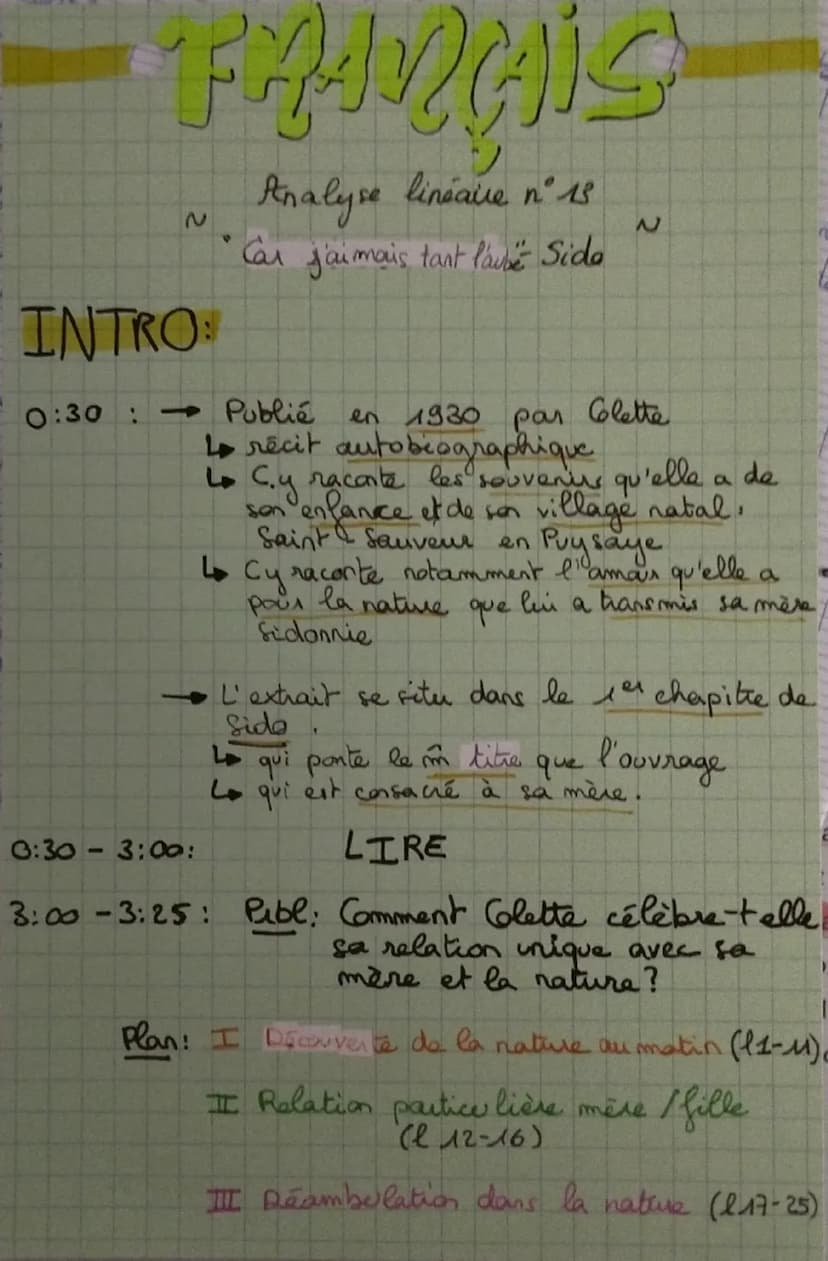 FRANÇAIS
Analyse linéaire n° 19
~ "Car j'aimais tant l'aube" - Sido ~
INTRO:
0:30 : → Publié en 1930 par Colette
↳ récit autobiographique
↳ C.y raconte les souvenirs qu'elle a de
son enfance et de son village natal,
Saint Sauveur en Puysaye
↳ C y raconte notamment l'amour qu'elle a
pour la nature que lui a transmis sa mère
Sidonnie
→ L'extrait se situ dans le 1er chapitre de
Sido.
↳ qui porte le m̂ titre que l'ouvrage
↳ qui est consacré à sa mère.
0:30 - 3:00: LIRE
3:00 - 3:25: Pbl: Comment Colette célèbre-t elle
sa relation unique avec sa
mère et la nature?
Plan: I Découverte de la nature au matin (l1-11).
II Relation particulière mère / fille
(l 12-16)
III Déambulation dans la nature (l17-25)